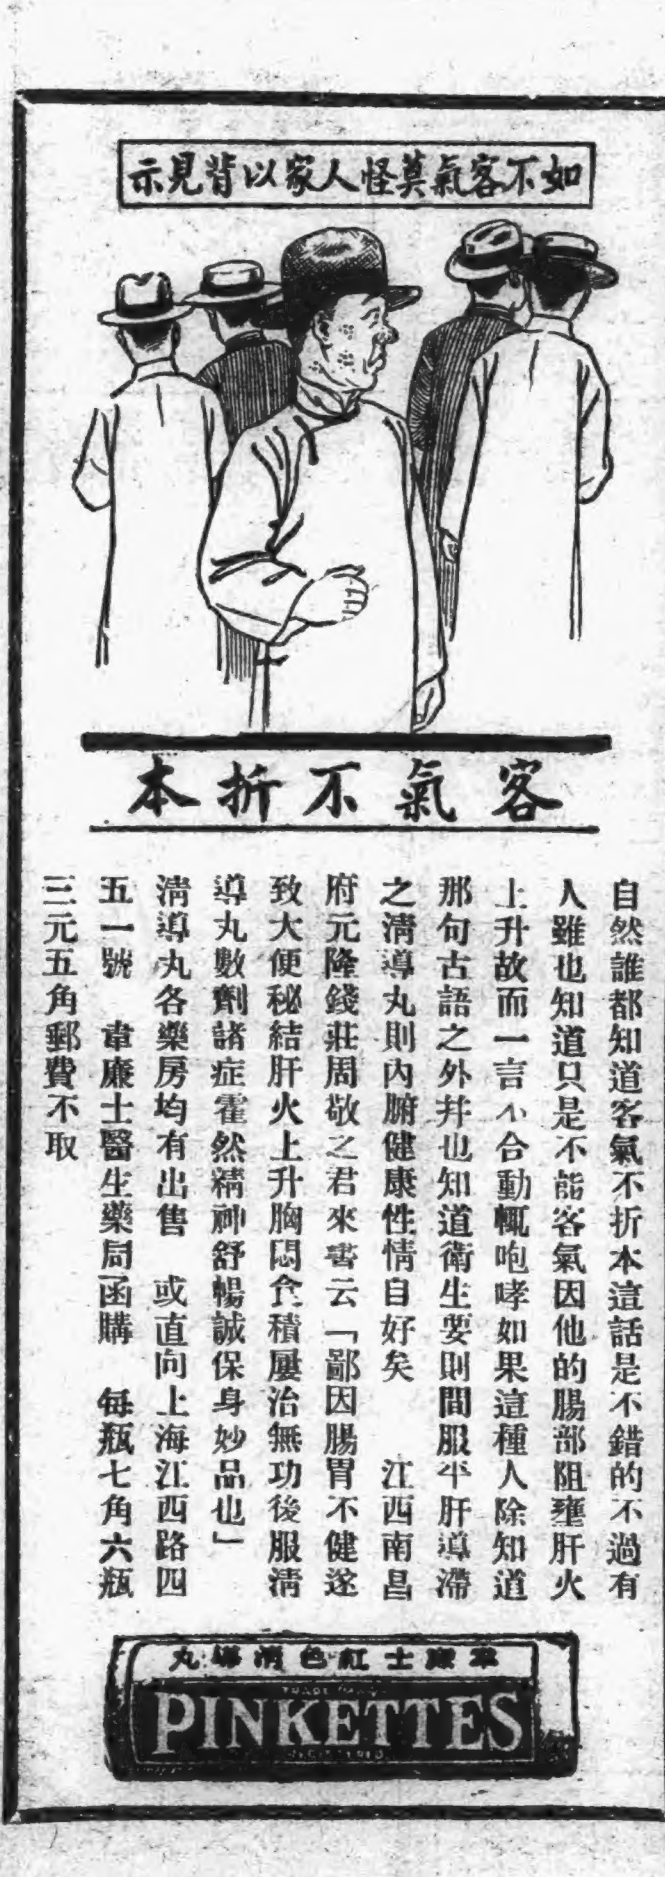 如不客氣莫怪人家以背見示
客氣不折本
自然誰都知道客氣不折本這話是不錯的不過有
人雖也知道只是不能客氣因他的腸部阻壅肝火
上升故而一言不合動輒咆哮如果這種人除知道
那句古語之外并也知道衛生要則間服平肝導滯
之清導丸則內腑健康性情自好矣　江西南昌
府元隆錢莊周敬之君來書云「鄙因腸胃不健遂
致大便秘結肝火上升胸悶食積屢治無功後服清
導丸數劑諸症霍然精神舒暢誠保身妙品也」
清導丸各藥房均有出售　或直向上海江西路四
五一號　韋廉士醫生藥局函購　每瓶七角六瓶
三元五角郵費不取
韋廉士紅色清導丸
TRADE MARK
PINKETTES
REGISTERED